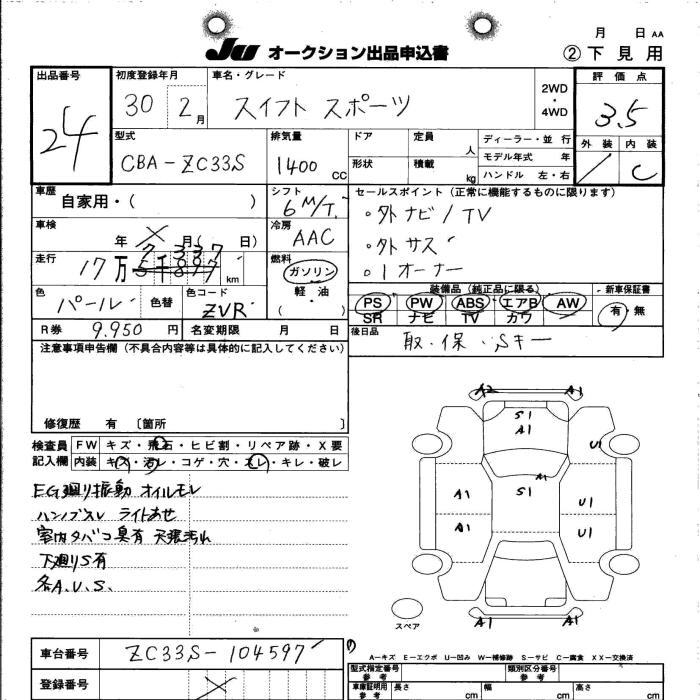 月 日 AA
JU オークション出品申込書 ② 下見用
出品番号 初度登録年月 車名・グレード 2WD ・ 4WD 評価点
24 30 2月 スイフト スポーツ 3.5
型式 排気量 ドア 定員 人 ディーラー・並 行 外装 内装
CBA-ZC33S 1400 CC 形状 積載 kg モデル年式 年 / C
ハンドル 左・右
車歴 自家用・( ) シフト 6M/T. セールスポイント (正常に機能するものに限ります)
・外ナビ/TV
車検 年 月( 日) 冷房 AAC ・外サス
走行 17万 7337 km 燃料 ガソリン ・1オーナー
軽油 ・ ( )
色 パール 色替 色コード ZVR 装備品 (純正品に限る) 新車保証書
PS PW ABS エアB AW 有・無
SR ナビ TV カワ
R券 9.950 円 名変期限 月 日 後日品 取.保.Sキー
注意事項申告欄 (不具合内容等は具体的に記入してください)
修復歴 有 〔箇所 〕
検査員 FW キズ・飛石・ヒビ割・リペア跡・X要
記入欄 内装 キズ・汚レ・コゲ・穴・スレ・キレ・破レ
EG廻り振動 オイルモレ
ハンドルスレ ライトあせ
室内タバコ臭有 天張汚れ
下廻りS有
各A.U.S.
A2 A1
S1
A1
U1
M
A1 S1 U1
A1 U1
A1 A1
スペア
車台番号 ZC33S-104597
A-キズ E-エクボ U-凹み W-補修跡 S-サビ C-腐食 XX-交換済
登録番号 型式指定番号 参考 類別区分番号 参考
車庫証明用 参考 長さ cm 幅 cm 高さ cm